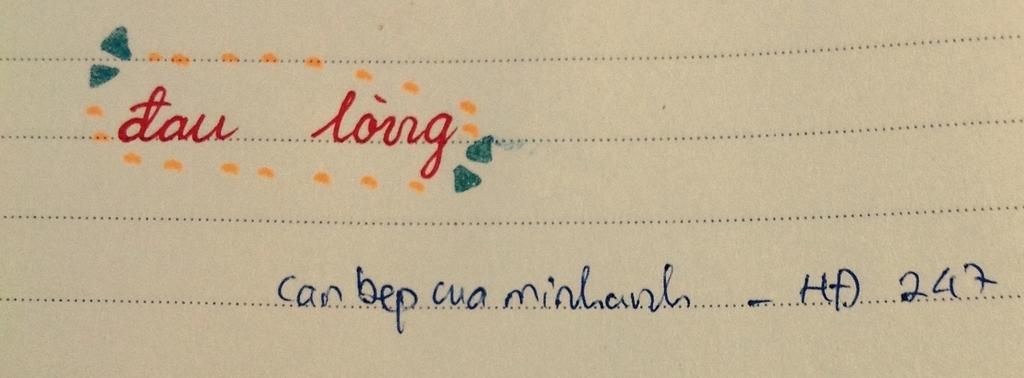 đau lòng
can bep cua minhanh - HĐ 247